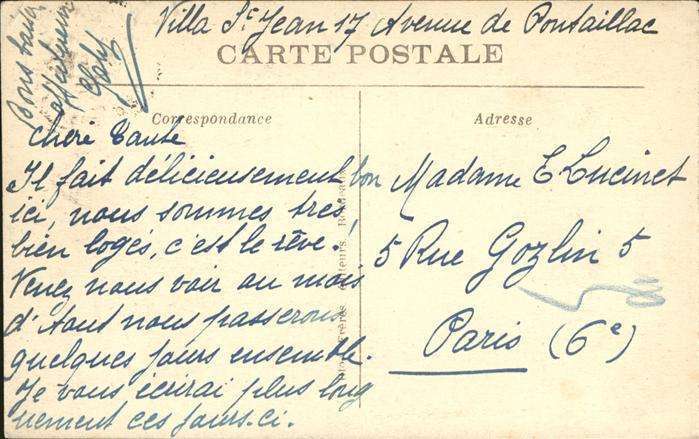 Villa St Jean 17 Avenue de Pontaillac
CARTE POSTALE
Correspondance
Adresse
chère Tante
Il fait délicieusement bon
ici, nous sommes très
bien logés, c'est le rêve!
Venez nous voir au mois
d'Aout nous passerons
quelques jours ensemble.
Je vous écrirai plus long
uement ces jours-ci.
Bons baisers
Madame E Lucinet
5 Rue Gozlin 5
Paris (6e)